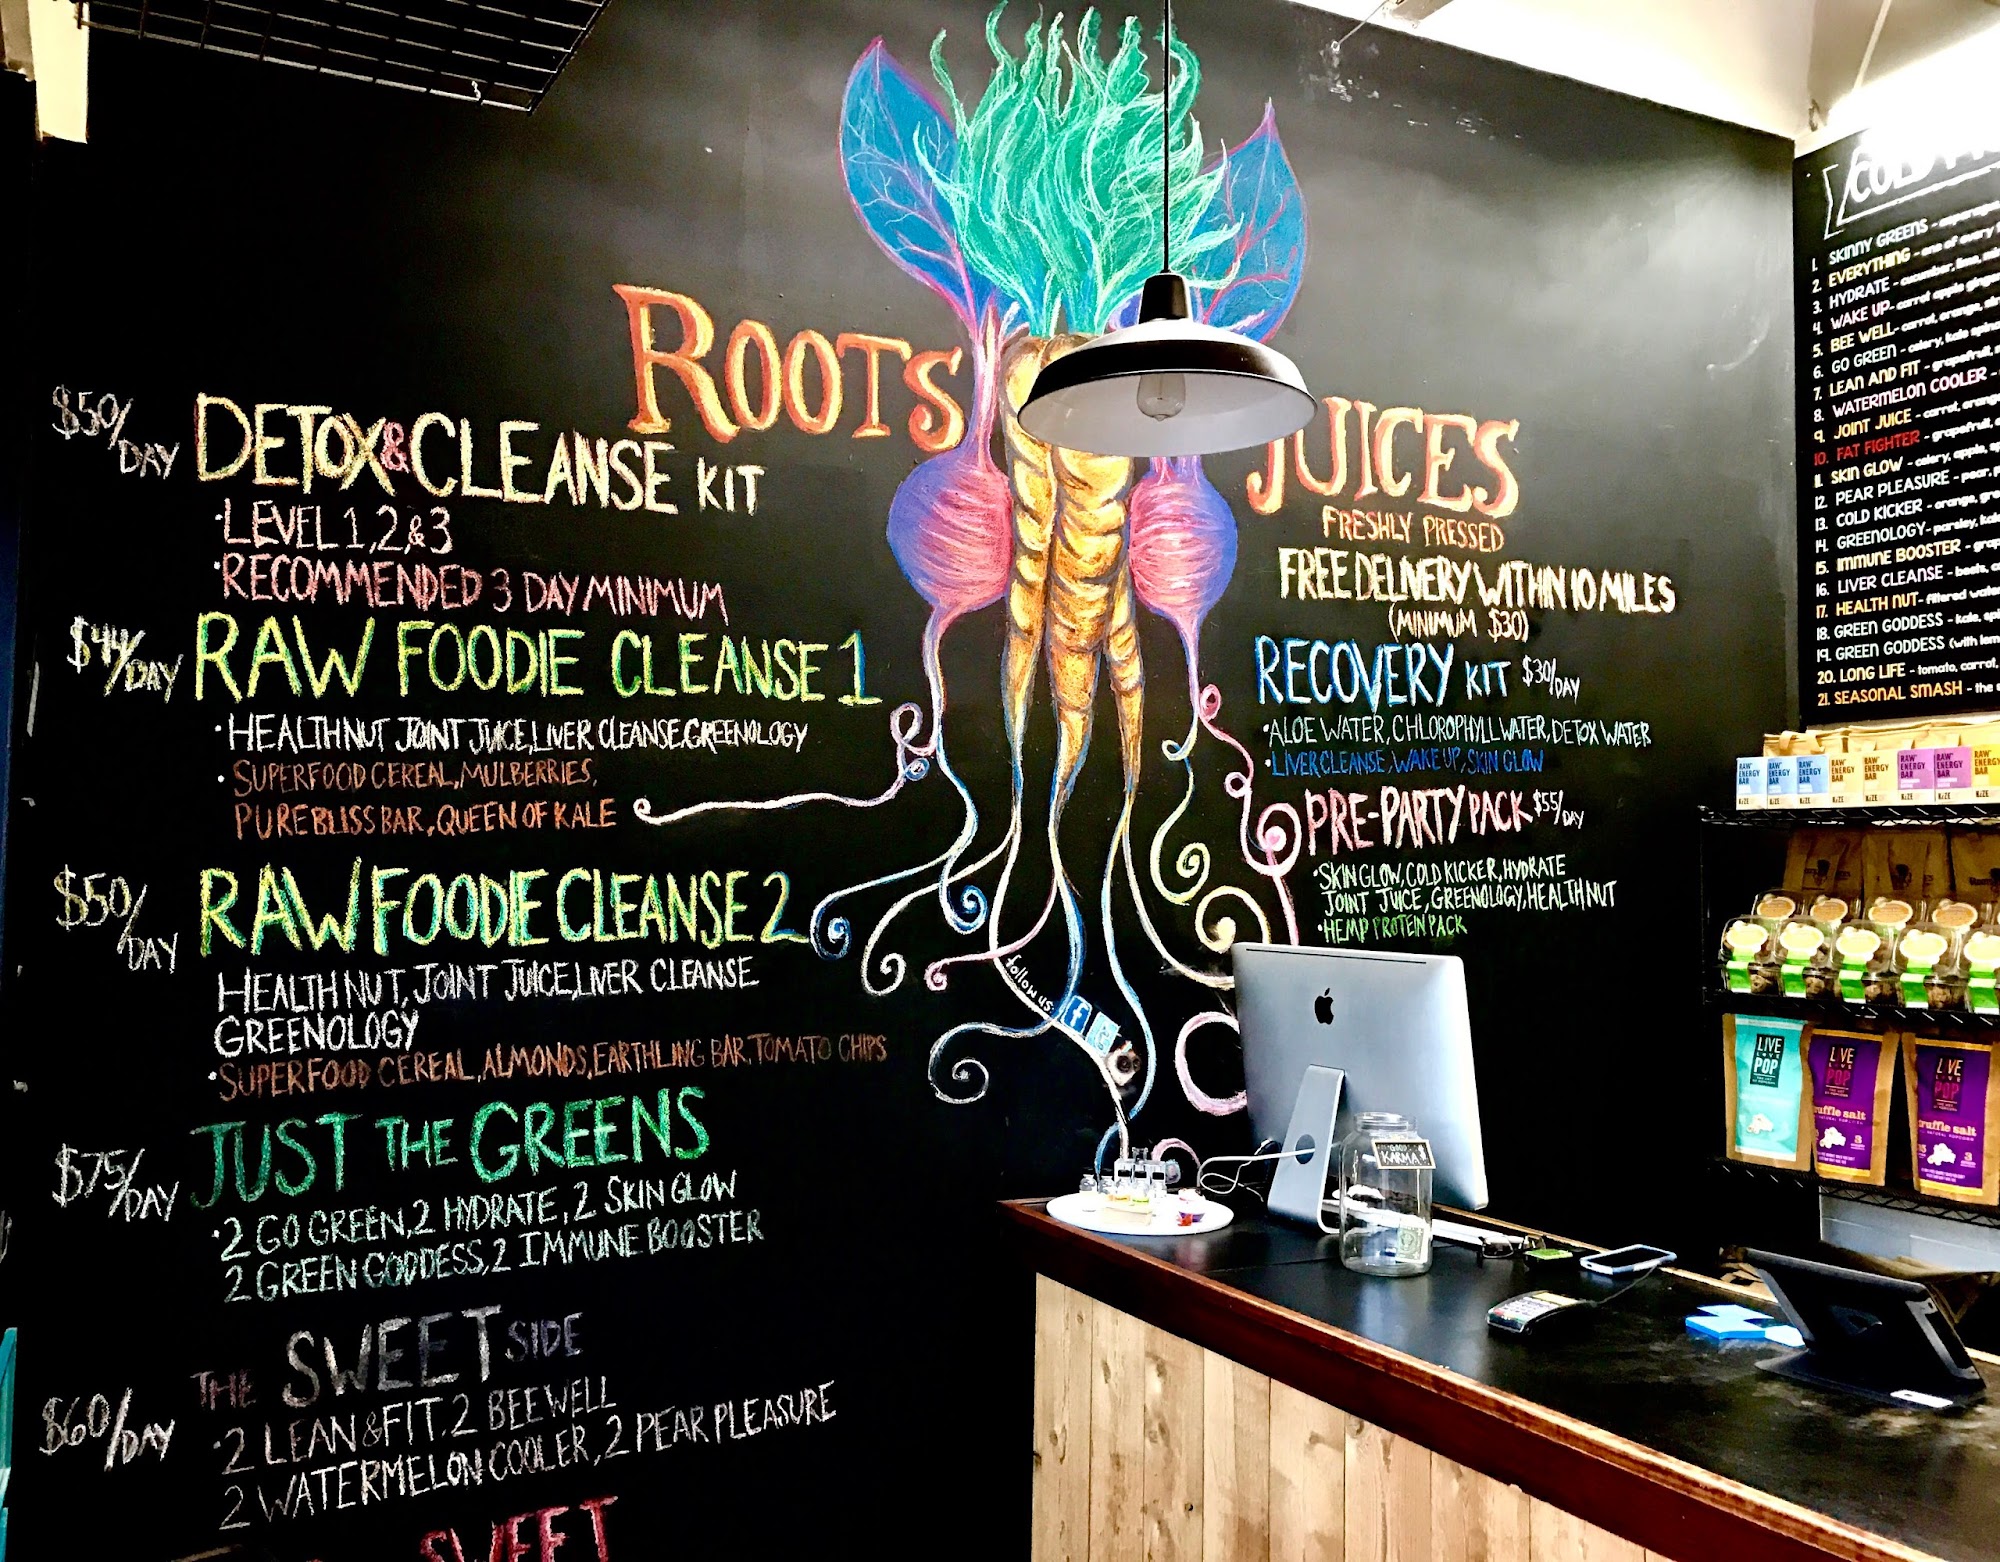 ROOTS
JUICES
FRESHLY PRESSED
FREE DELIVERY WITHIN 10 MILES
(MINIMUM $30)
$50/DAY
DETOX & CLEANSE KIT
·LEVEL 1,2,&3
·RECOMMENDED 3 DAY MINIMUM
$44/DAY
RAW FOODIE CLEANSE 1
·HEALTH NUT JOINT JUICE, LIVER CLEANSE, GREENOLOGY
·SUPERFOOD CEREAL, MULBERRIES,
PURE BLISS BAR, QUEEN OF KALE
$50/DAY
RAW FOODIE CLEANSE 2
HEALTH NUT, JOINT JUICE, LIVER CLEANSE
GREENOLOGY
·SUPERFOOD CEREAL, ALMONDS, EARTHLING BAR, TOMATO CHIPS
$75/DAY
JUST THE GREENS
·2 GO GREEN, 2 HYDRATE, 2 SKIN GLOW
2 GREEN GODDESS, 2 IMMUNE BOOSTER
$60/DAY
THE SWEET SIDE
·2 LEAN & FIT, 2 BEE WELL
2 WATERMELON COOLER, 2 PEAR PLEASURE
SWEET
RECOVERY KIT $30/DAY
·ALOE WATER, CHLOROPHYLL WATER, DETOX WATER
·LIVER CLEANSE, WAKE UP, SKIN GLOW
PRE-PARTY PACK $55/DAY
·SKIN GLOW, COLD KICKER, HYDRATE
JOINT JUICE, GREENOLOGY, HEALTH NUT
·HEMP PROTEIN PACK
follow us
f
KARMA
COLD
1. SKINNY GREENS - asparagus,
2. EVERYTHING - one of every
3. HYDRATE - cucumber, lime,
4. WAKE UP - carrot apple ginger
5. BEE WELL - carrot, orange,
6. GO GREEN - celery, kale
7. LEAN AND FIT - grapefruit,
8. WATERMELON COOLER -
9. JOINT JUICE - carrot, orange
10. FAT FIGHTER - grapefruit,
11. SKIN GLOW - celery, apple,
12. PEAR PLEASURE - pear,
13. COLD KICKER - orange,
14. GREENOLOGY - parsley, kale
15. IMMUNE BOOSTER -
16. LIVER CLEANSE - beets,
17. HEALTH NUT - filtered water
18. GREEN GODDESS - kale,
19. GREEN GODDESS (with
20. LONG LIFE - tomato, carrot,
21. SEASONAL SMASH - the
RAW ENERGY BAR
RAW ENERGY BAR
RAW ENERGY BAR
RAW ENERGY BAR
RAW ENERGY BAR
RAW ENERGY BAR
RAW ENERGY BAR
KiZE
LIVE LOVE POP
LIVE LOVE POP
truffle salt
LIVE LOVE POP
truffle salt